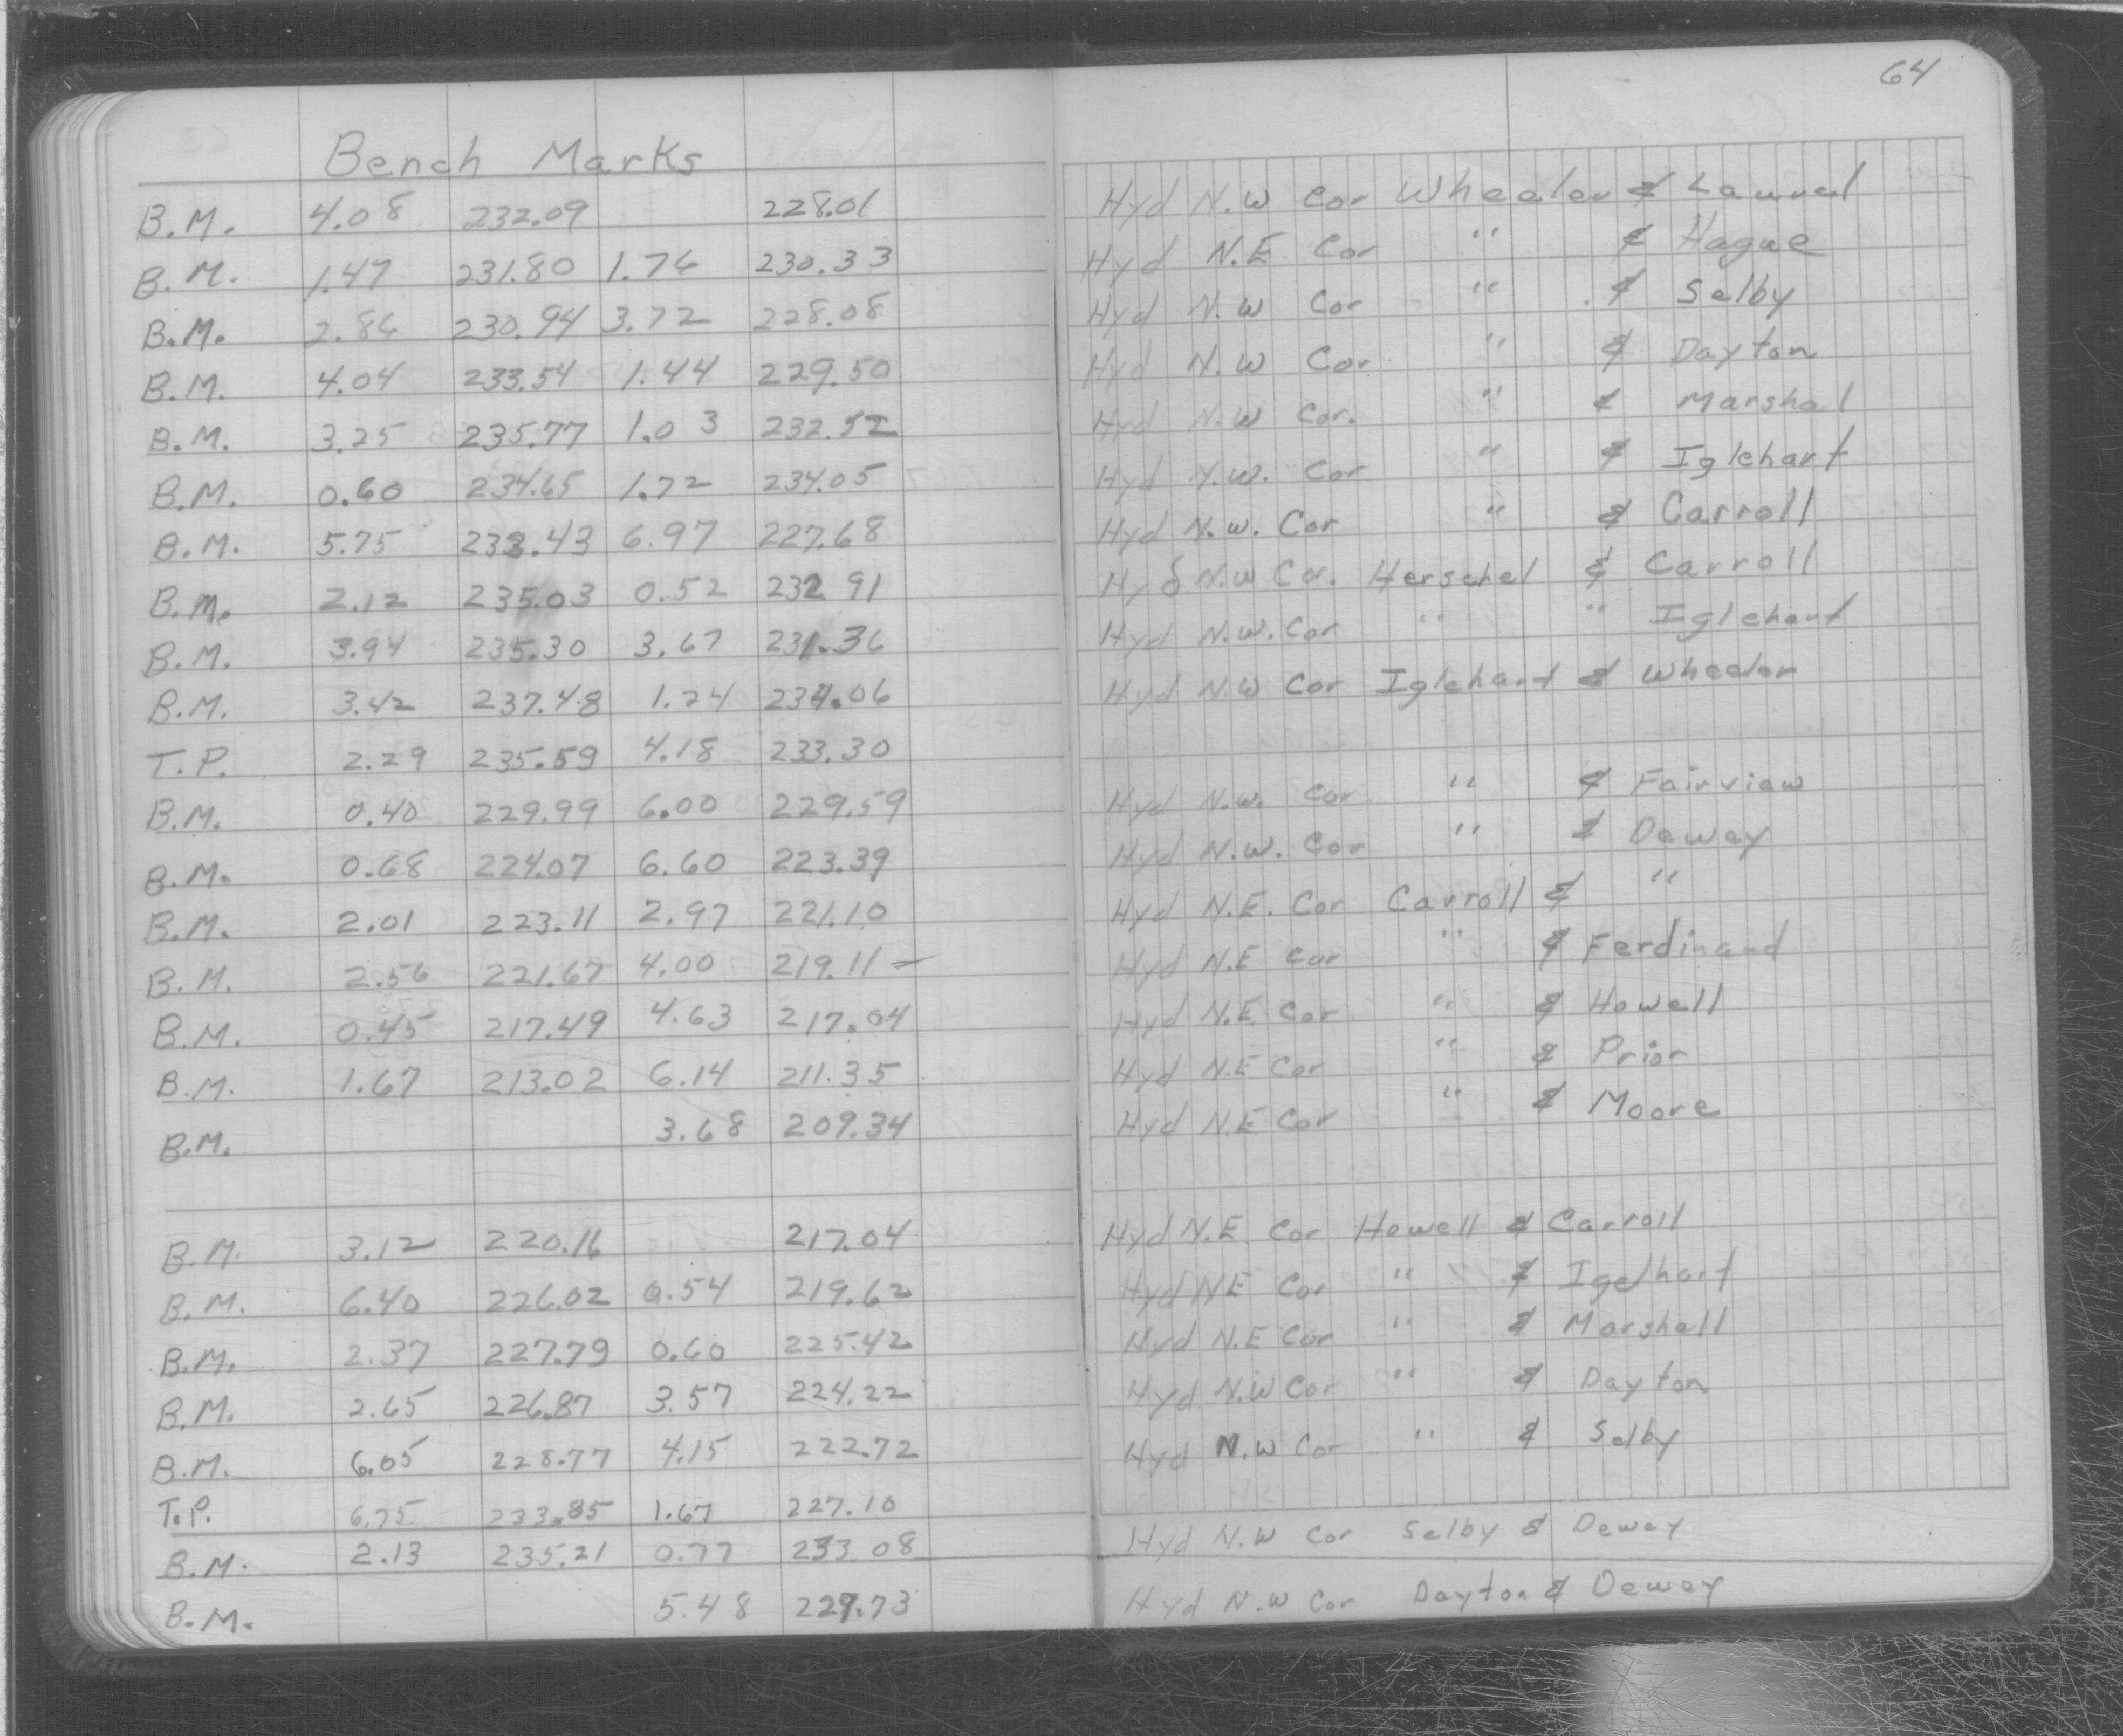 64
Bench Marks
B.M. 4.08 232.09 228.01 Hyd N.W Cor Wheeler & Laurel
B.M. 1.47 231.80 1.76 230.33 Hyd N.E Cor " & Hague
B.M. 2.86 230.94 3.72 228.08 Hyd N.W Cor " & Selby
B.M. 4.04 233.54 1.44 229.50 Hyd N.W Cor " & Dayton
B.M. 3.25 235.77 1.03 232.52 Hyd N.W Cor. " & Marshal
B.M. 0.60 234.65 1.72 234.05 Hyd N.W. Cor " & Iglehart
B.M. 5.75 233.43 6.97 227.68 Hyd N.W. Cor " & Carroll
B.M. 2.12 235.03 0.52 232.91 Hyd N.W Cor. Herschel & Carroll
B.M. 3.94 235.30 3.67 231.36 Hyd N.W. Cor " " Iglehart
B.M. 3.42 237.48 1.24 234.06 Hyd N.W Cor Iglehart & Wheeler
T.P. 2.29 235.59 4.18 233.30
B.M. 0.40 229.99 6.00 229.59 Hyd N.W. Cor " & Fairview
B.M. 0.68 224.07 6.60 223.39 Hyd N.W. Cor " & Dewey
B.M. 2.01 223.11 2.97 221.10 Hyd N.E. Cor Carroll & "
B.M. 2.56 221.67 4.00 219.11 Hyd N.E Cor " & Ferdinand
B.M. 0.45 217.49 4.63 217.04 Hyd N.E. Cor " & Howell
B.M. 1.67 213.02 6.14 211.35 Hyd N.E Cor " & Prior
B.M. 3.68 209.34 Hyd N.E Cor " & Moore
B.M. 3.12 220.16 217.04 Hyd N.E. Cor Howell & Carroll
B.M. 6.40 226.02 0.54 219.62 Hyd N.E Cor " & Igelhart
B.M. 2.37 227.79 0.60 225.42 Hyd N.E Cor " & Marshall
B.M. 2.65 226.87 3.57 224.22 Hyd N.W Cor " & Dayton
B.M. 6.05 228.77 4.15 222.72 Hyd N.W Cor " & Selby
T.P. 6.75 233.85 1.67 227.10
B.M. 2.13 235.21 0.77 233.08 Hyd N.W Cor Selby & Dewey
B.M. 5.48 229.73 Hyd N.W Cor Dayton & Dewey